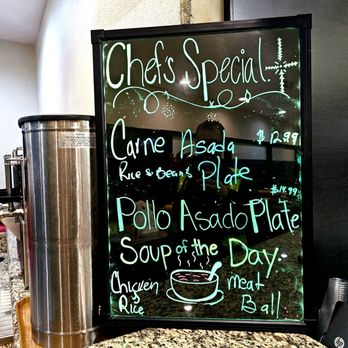 Chef's Special
Carne Asada $12.99
Rice & Beans Plate
$14.99
Pollo Asado Plate
Soup of the Day
Chicken & Rice
meat Ball